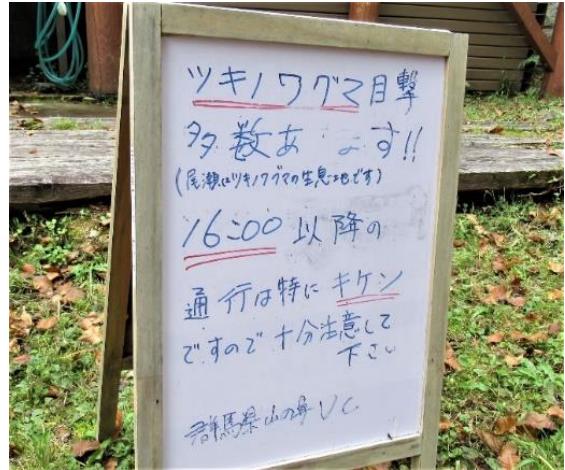 ツキノワグマ目撃
多数あ　ます!!
(尾瀬はツキノワグマの生息地です)
16:00以降の
通行は特にキケン
ですので十分注意して
下さい
群馬県山の鼻VC